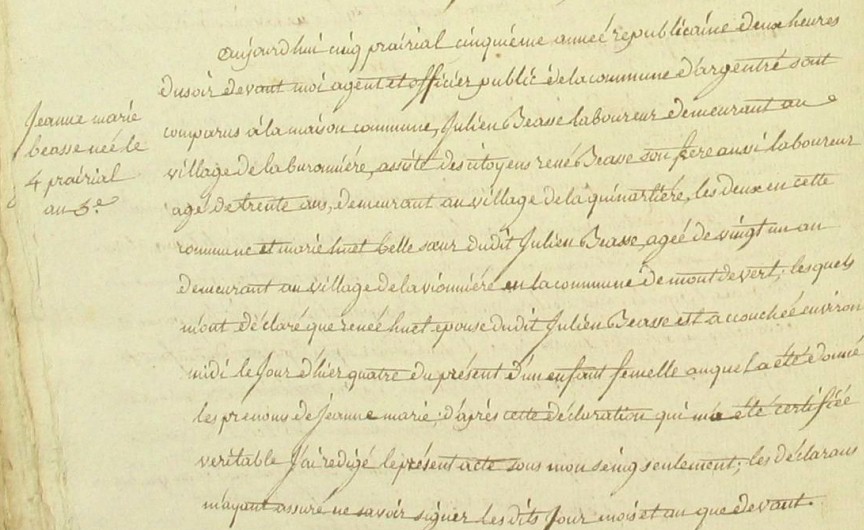 Jeanne marie
beasse née le
4 prairial
an 5.e
aujourdhui cinq prairial cinquième anneé republicaine deux heures
du soir devant moi agent et officier public de la commune d'argentré sont
comparus à la maison commune, Julien Beasse laboureur demeurant au
village de la buronniére, assisté des citoyens rené Beasse son frere aussi laboureur
agé de trente ans, demeurant au village de la quinartiére, les deux en cette
commune et marie huet belle sœur dudit Julien Beasse, ageé de vingt un an
demeurant au village de la vionniére en la commune de mont de vert; lesquels
m'ont déclaré que reneé huet epouse dudit Julien Beasse est accoucheé environ
midi le Jour d'hier quatre du présent d'un enfant femelle auquel a été donné
les prenoms de Jeanne marie; d'après cette déclaration qui m'a été certifieé
veritable J'ai redigé le présent acte sous mon seing seulement; les déclarans
m'ayant assuré ne savoir signer les dits Jour mois et an que devant.